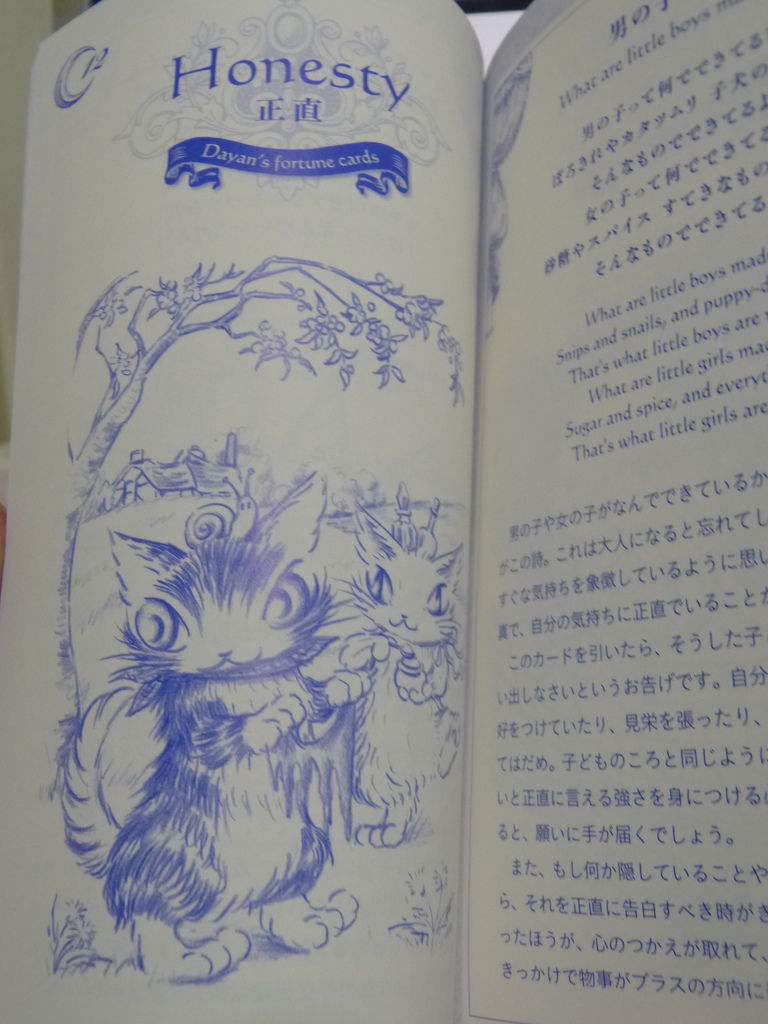 Honesty
正直
Dayan's fortune cards
男の子
What are little boys
男の子って何でできてる
ぼろきれやカタツムリ 子犬の
そんなものでできてるよ
女の子って何でできてる
砂糖やスパイス すてきなもの
そんなものでできてる
What are little boys made
Snips and snails, and puppy-d
That's what little boys are
What are little girls mad
Sugar and spice, and everyt
That's what little girls are
男の子や女の子がなんでできているか
がこの詩。これは大人になると忘れてし
すぐな気持ちを象徴しているように思い
真で、自分の気持ちに正直でいることが
このカードを引いたら、そうした子
い出しなさいというお告げです。自分
好をつけていたり、見栄を張ったり、
てはだめ。子どものころと同じように
いと正直に言える強さを身につける
ると、願いに手が届くでしょう。
また、もし何か隠していることや
ら、それを正直に告白すべき時がき
ったほうが、心のつかえが取れて、
きっかけで物事がプラスの方向に